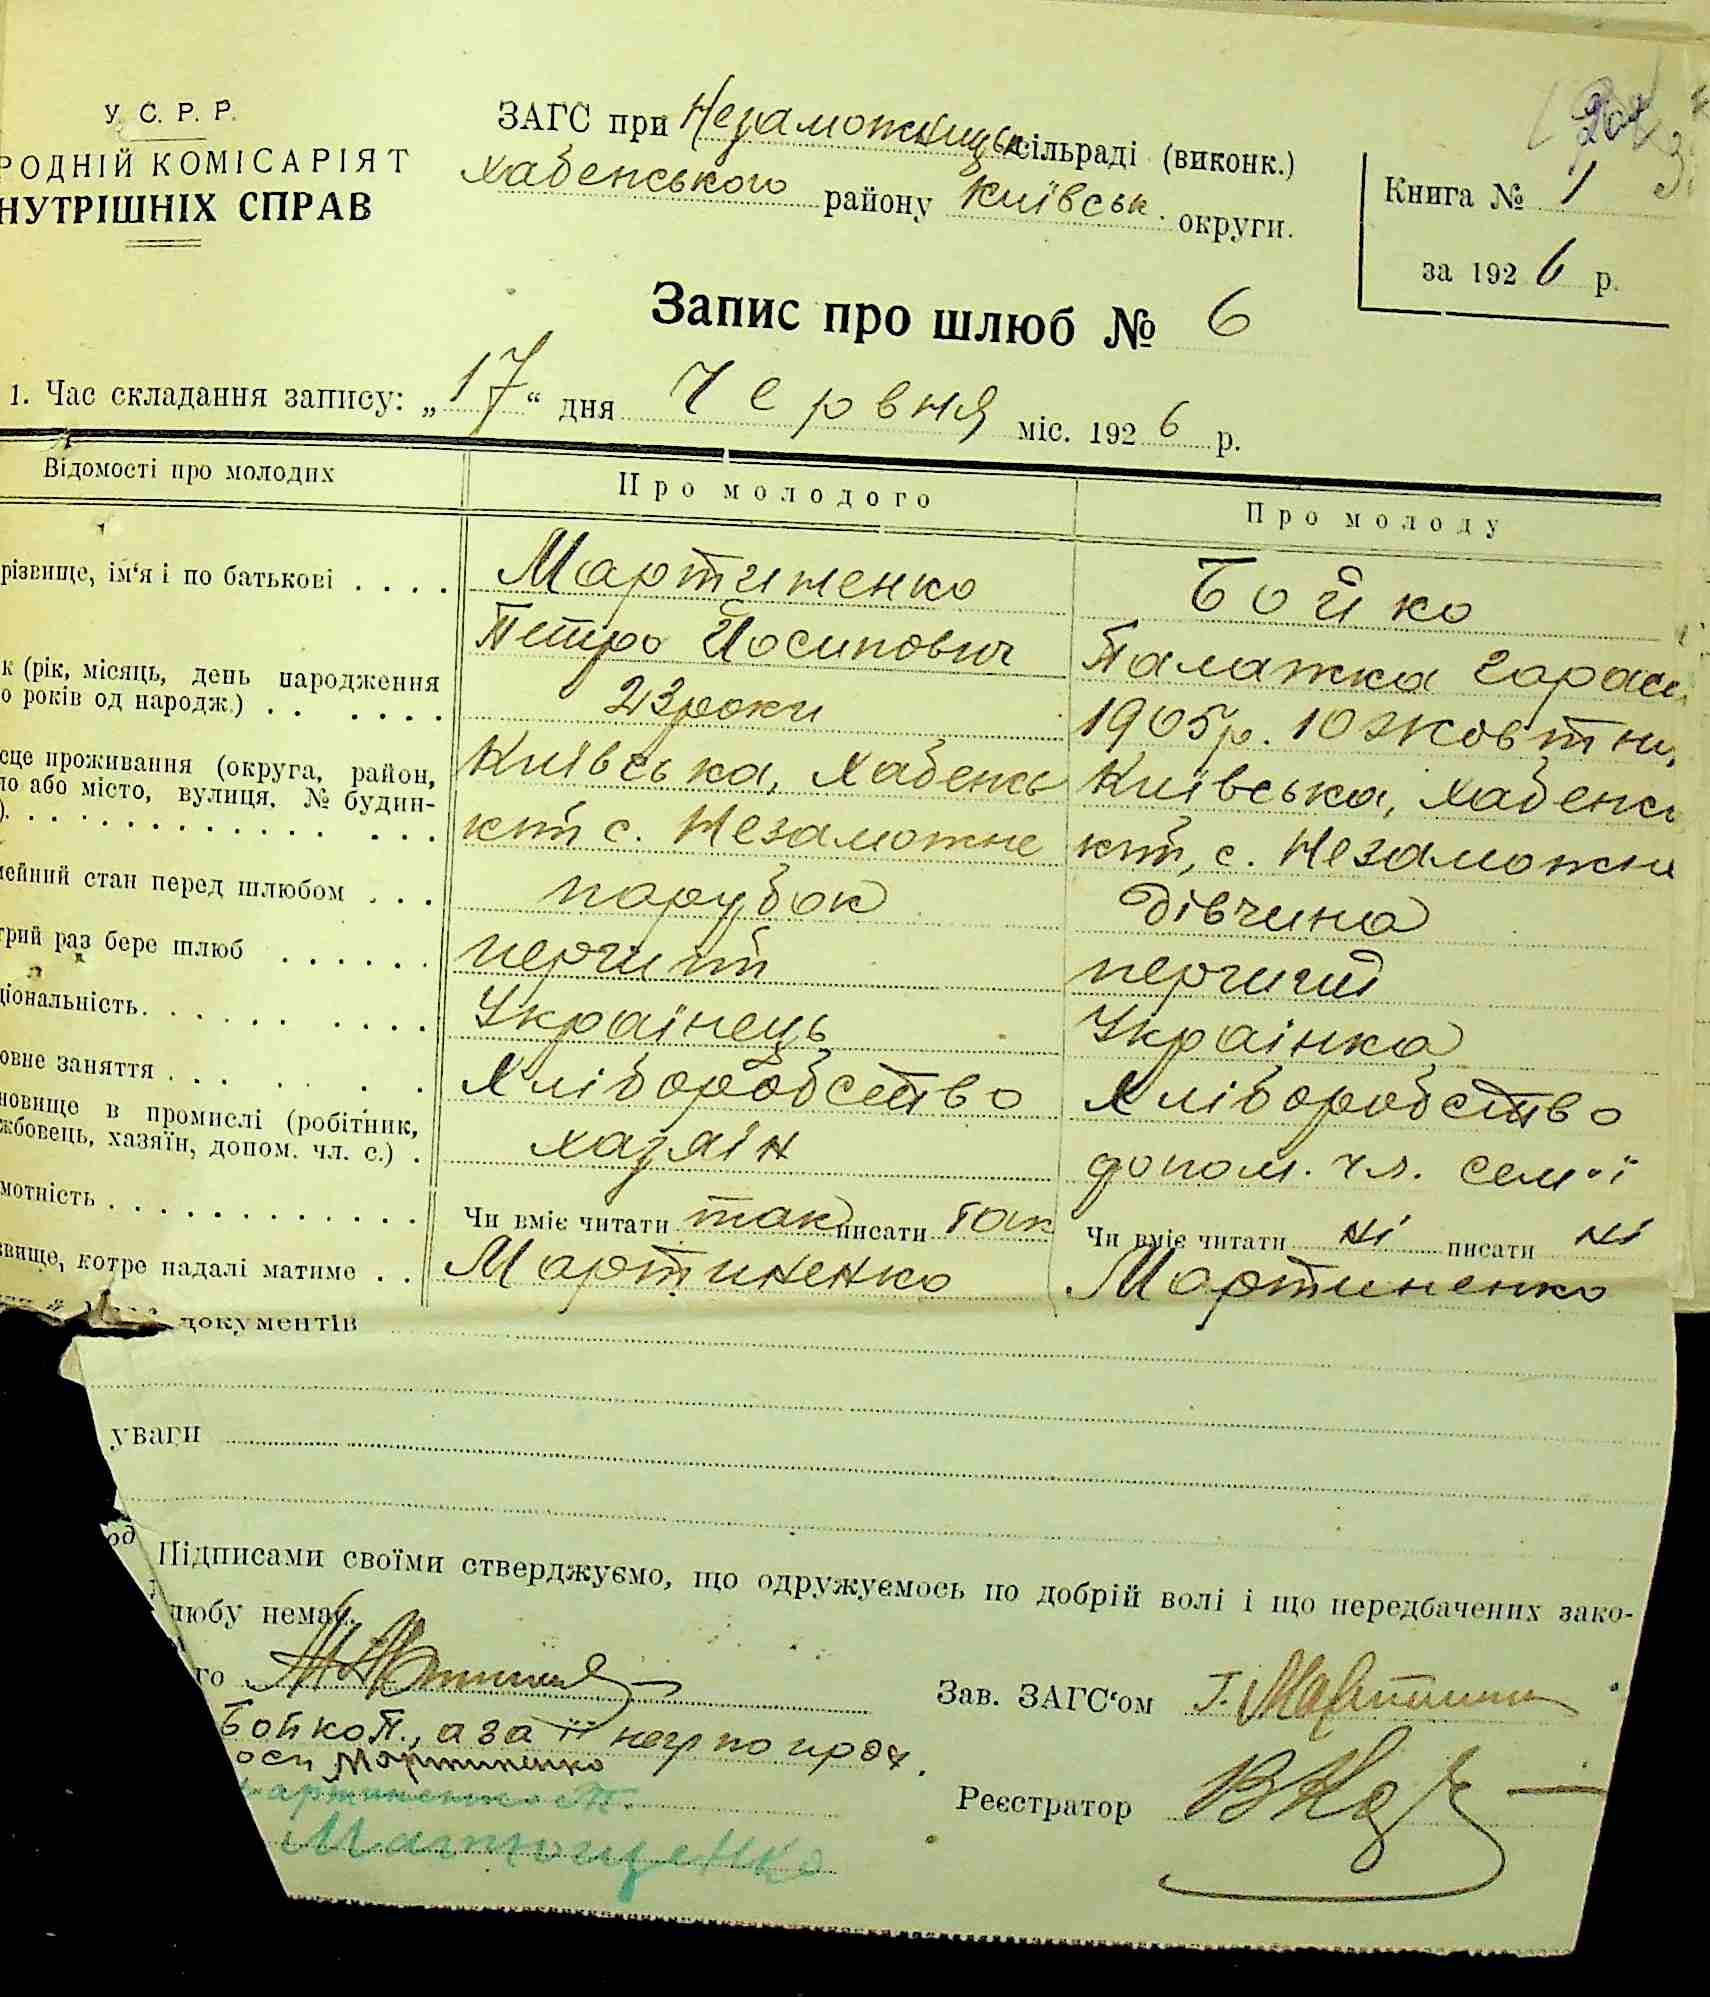 У. С. Р. Р.
РОДНІЙ КОМІСАРІЯТ
НУТРІШНІХ СПРАВ
ЗАГС при Незаможницьк сільраді (виконк.)
Хабенського району Київськ. округи.
Книга № 1
за 1926 р.
Запис про шлюб № 6
1. Час складання запису: „17“ дня Червня міс. 1926 р.
Відомості про молодих Про молодого Про молоду
різвище, ім‘я і по батькові . . . . Мартиненко Бойко
Петро Йосипович Палажка Гарас
к (рік, місяць, день народження
о років од народж.) . . . . . . 23 роки 1905 р. 10 жовтн
сце проживання (округа, район, Київська, Хабенсь Київська, Хабенсь
ло або місто, вулиця, № будин-
). . . . . . . . . . . . . . . . кий с. Незаможне кий, с. Незаможне
мейний стан перед шлюбом . . . парубок дівчина
трий раз бере шлюб . . . . . . перчий перчий
ціональність. . . . . . . . . . Українець Українка
овне заняття . . . . . . . Хліборобство Хліборобство
новище в промислі (робітник,
жбовець, хазяїн, допом. чл. с.) . хазяїн допом. чл. сем‘ї
мотність . . . . . . . . . . . . . Чи вміє читати так писати так Чи вміє читати ні писати ні
звище, котре надалі матиме . . Мартиненко Мартиненко
документів
уваги
Підписами своїми стверджуємо, що одружуємось по добрій волі і що передбачених зако-
любу немає.
го
Зав. ЗАГС‘ом Г. Мартиненко
Бойко П., а за її негр по прох.
оси Мартиненко
артиненко П.
Реєстратор
Матющенко